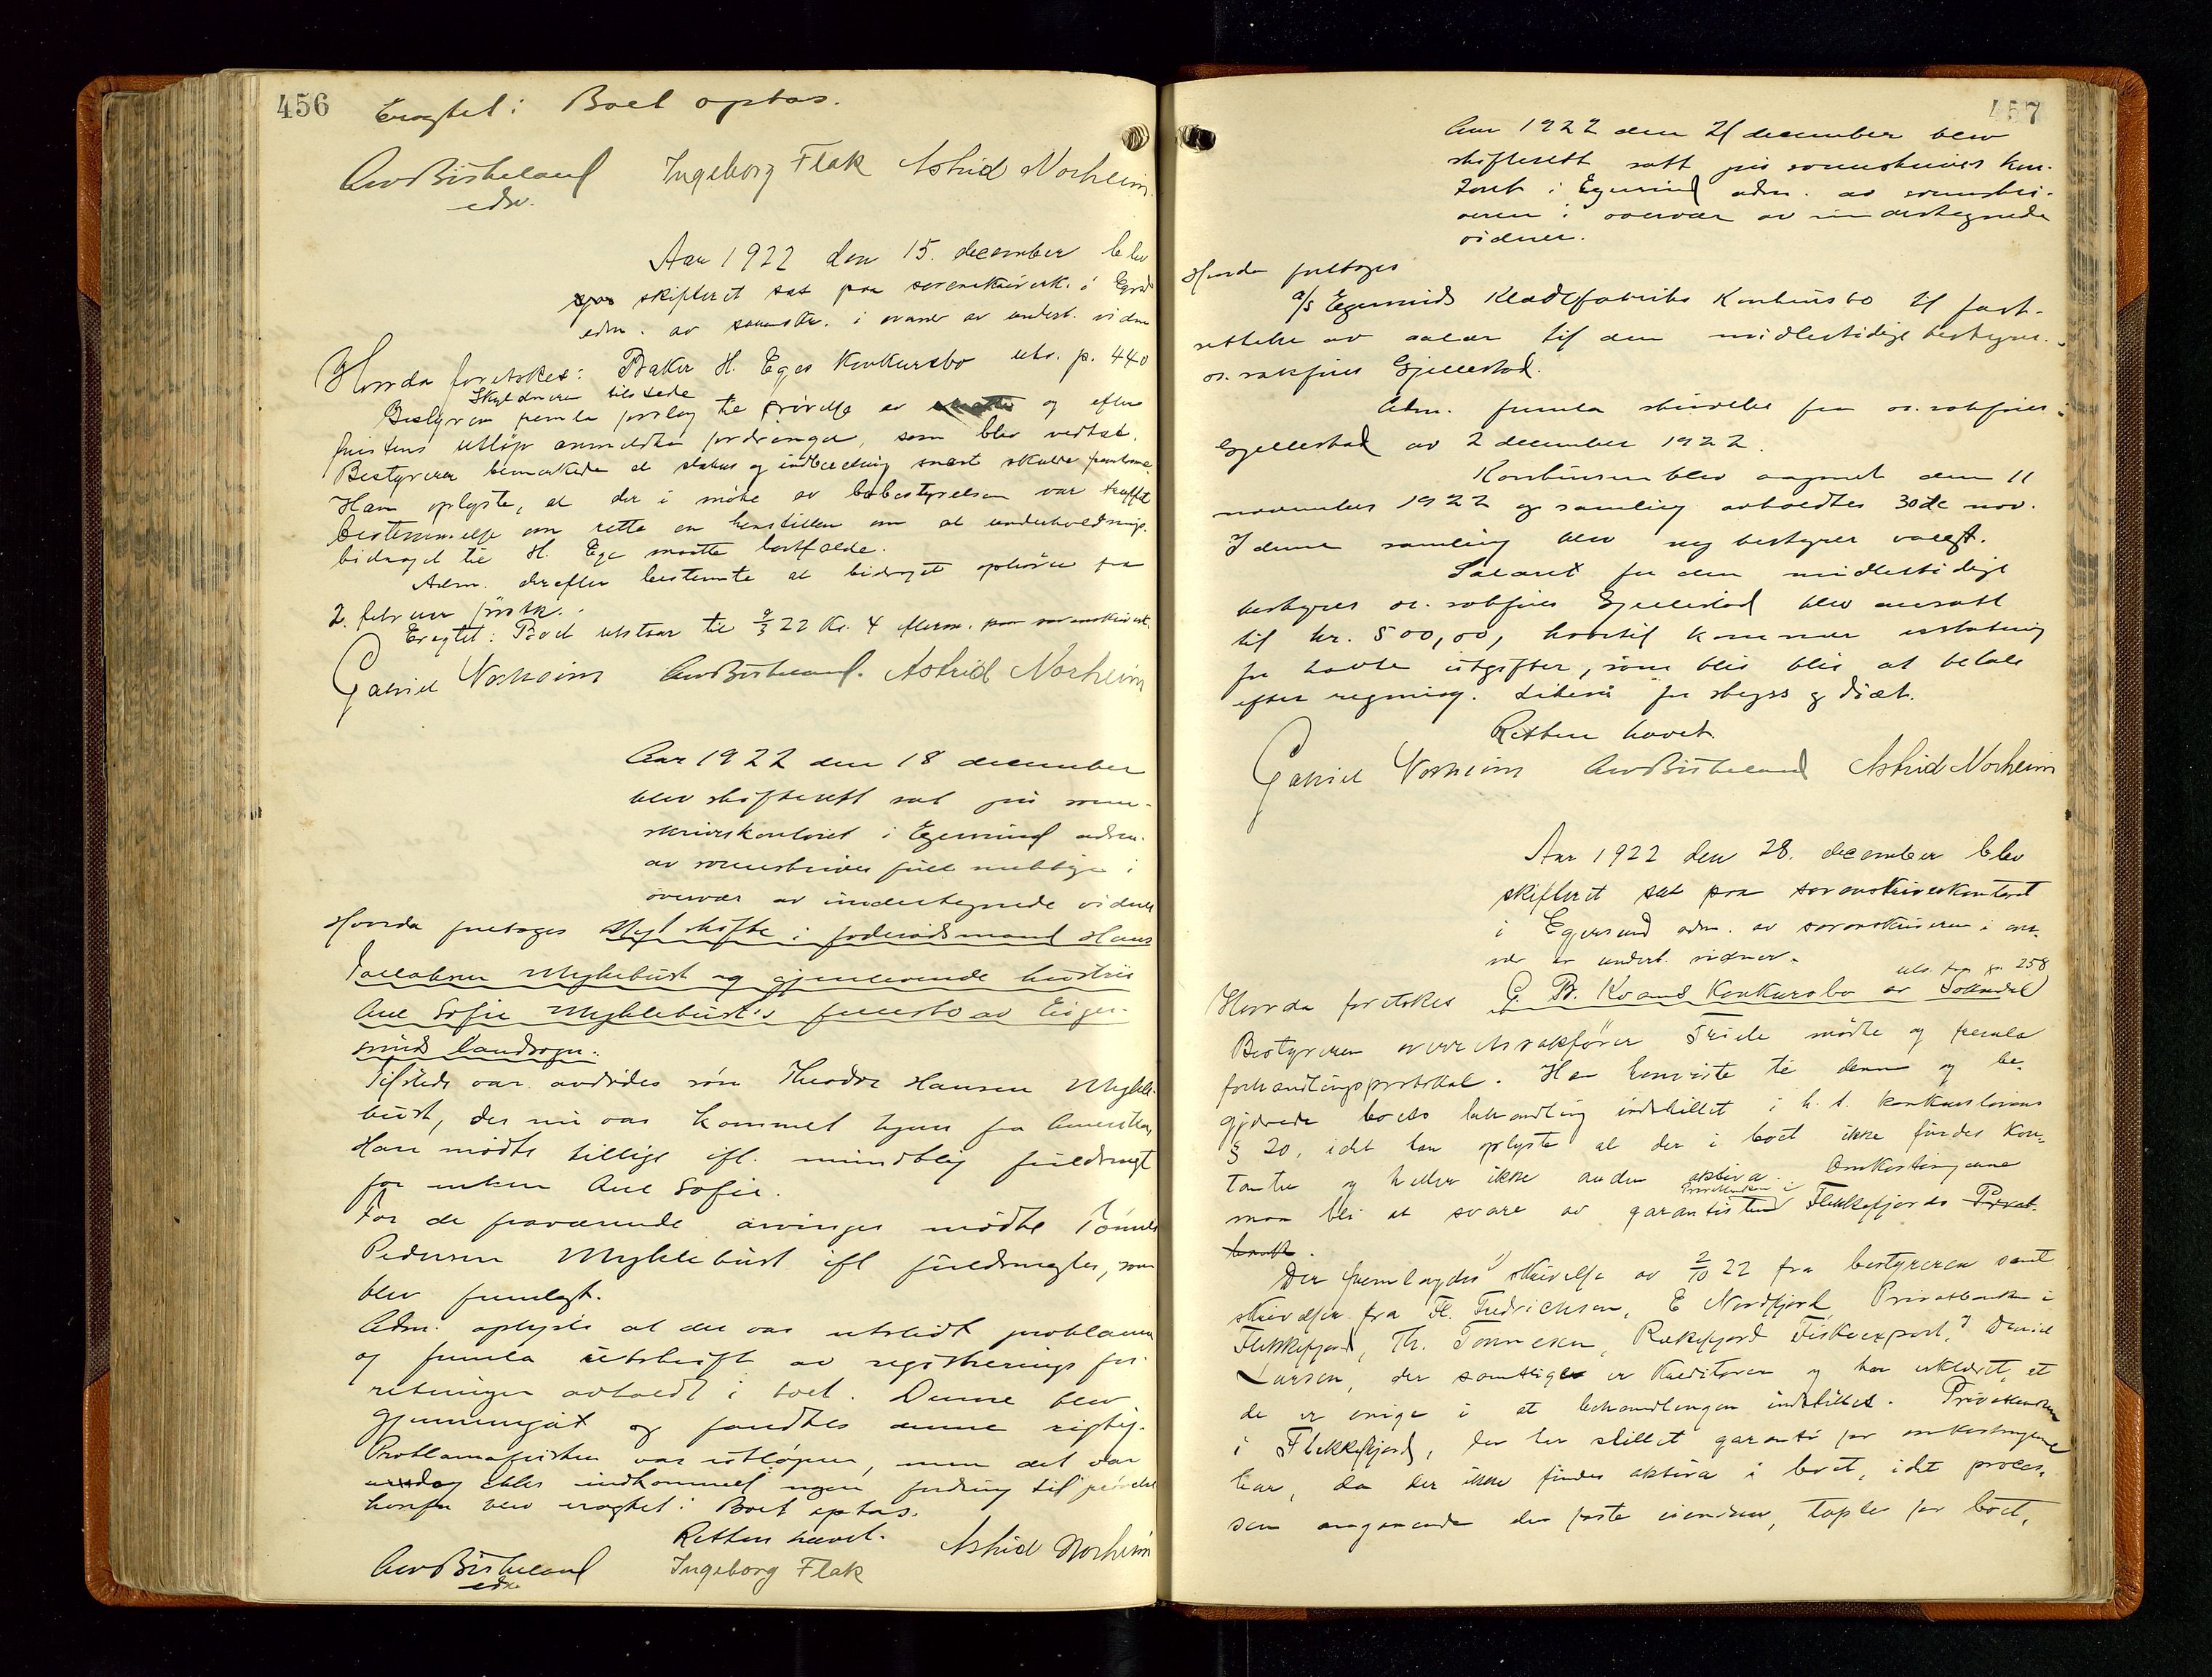 456
Eragtet: Boet optas.
Ingeborg Flak Astrid Norheim
edsv.
Aar 1922 den 15. december blev
skifteret sat paa sorenskriverk. i Egrsd
adm. av sorenskr. i overvær av undert. vidner
Hvorda foretokes: Baker H. Eges Konkursbo uts. p. 440
Skyldneren tilstede
Bestyreren femla forslag til prövelse av og efter
fristens utlöp anmeldte fordringer, som blev vedtat.
Bestyreren bemerkede at status og indberetning snart skulde fremkomme.
Han oplyste, at der i möte av bobestyrelsen var truffet
bestemmelse om rette en henstillen om at underholdnings-
bidraget til H. Ege maatte bortfalde.
Adm. derefter bestemte at bidraget ophörer fra
2. februar förstk.
Eragtet: Boet utstaar til 9/3 22 Kl. 4 efterm. paa sorenskriverk.
Gabriel Norheim Astrid Norheim
Aar 1922 den 18 december
blev skifterett sat på soren-
skriverkontoret i Egersund adm.
av sorenskriver fuldmektige i
overvær av undertegnede vidner
Hvorda foretoges skifte i foderådsmand Hans
Myklebust og gjenlevende hustru
Ane Sofie Myklebust's fællesbo av Eiger-
sunds landsogn.
Tilstede var avdödes sön Theodor Hansen Mykle-
bust, der nu var kommet hjem fra Amerika,
Han mödte tillige ifl. mundtlig fuldmagt
for enken Ane Sofie.
For de fraværende arvinger mödte Tönnes
Pedersen Myklebust ifl fuldmagter, som
blev fremlagt.
Adm. oplyste at der var utstedt proklama
og fremla utskrift av registrerings for-
retningen avholdt i boet. Denne blev
gjennemgåt og fandtes denne rigtig.
Proklamafristen var utlöpen, men det var
ikke indkommet nogen fordring til prövelse
hvorfor blev eragtet: Boet optas.
Retten hævet.
Ingeborg Flak Astrid Norheim
edsv
457
Aar 1922 den 21 december blev
skifterett satt på sorenskriver kon-
toret i Egersund adm. av sorenskri-
veren i overvær av undertegnede
vidner.
Hvorda foretoges
A/S Egersunds Klædefabriks Konkursbo til fast-
settelse av salær til den midlertidige bestyrer.
os. sakförer Gjellestad.
Adm. fremla skrivelse fra os. sakförer
Gjellestad av 2 december 1922.
Konkursen blev aapnet den 11
november 1922 og samling avholdtes 30te nov.
I denne samling blev ny bestyrer valgt.
Salæret for den midlertidige
bestyrer os. sakförer Gjellestad blev ansatt
til kr. 500,00, hvortil kommer erstatning
for havte utgifter, som blir blir at betale
efter regning. Likeså for skyss og diæt.
Retten hævet.
Gabriel Norheim Astrid Norheim
Aar 1922 den 28. december blev
skifteret sat paa sorenskriverkontoret
i Egersund adm. av sorenskriveren i over-
vær av undert. vidner.
uts. fra pr. 258
Hvorda foretokes G. B. Kvams Konkursbo av Sokndal
Bestyreren overretssakförer mödte og fremla
forhandlingsprotokol. Han henviste til denne og be-
gjærede boets behandling indstillet i h. t. konkurslovens
§ 20, idet han oplyste at der i boet ikke findes kon-
tanter og heller ikke anden aktiva. Omkostningerne
Privatbanken i
maa bli at svare av garantisten Flekkefjords Privat-
bank.
Der fremlagdes 1) skrivelse av 2/10 22 fra bestyreren samt
skrivelser fra Fl. Fredrichsen, E Nordfjord, Privatbanken i
Flekkefjord, Th. Tönnesen, Rekefjord Fiskexport, J Daniel
Larsen, der samtlige er Kreditorer og har erklæret, at
de er enige i at behandlingen indstilles. Privatbanken
i Flekkefjord, der har stillet garanti for omkostningene
har, da der ikke findes aktiva i boet, idet proces-
sen angaaende den faste eiendom, taptes for boet,